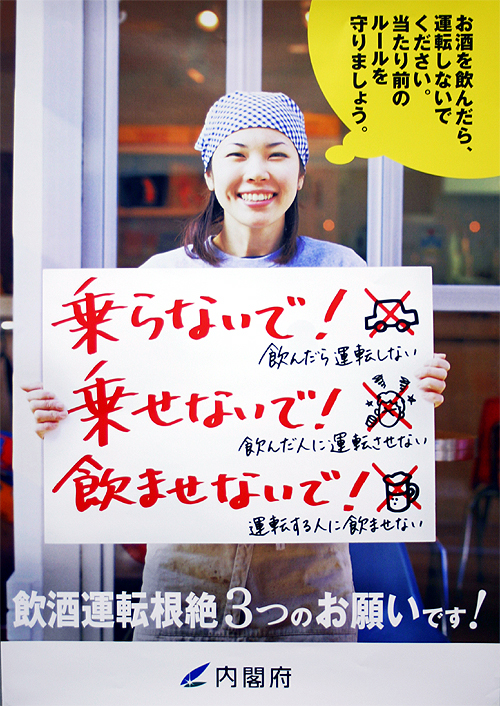 お酒を飲んだら、
運転しないで
ください。
当たり前の
ルールを
守りましょう。
乗らないで!
飲んだら運転しない
乗せないで!
飲んだ人に運転させない
飲ませないで!
運転する人に飲ませない
飲酒運転根絶3つのお願いです!
内閣府